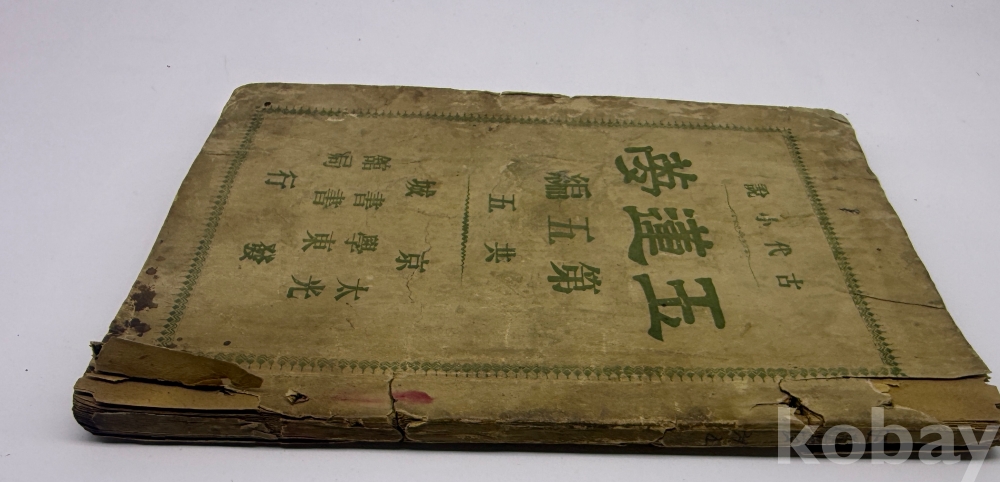 古代小說
玉蓮夢
第五編
共五
京城
光東書局
太學書館
發行
kobay